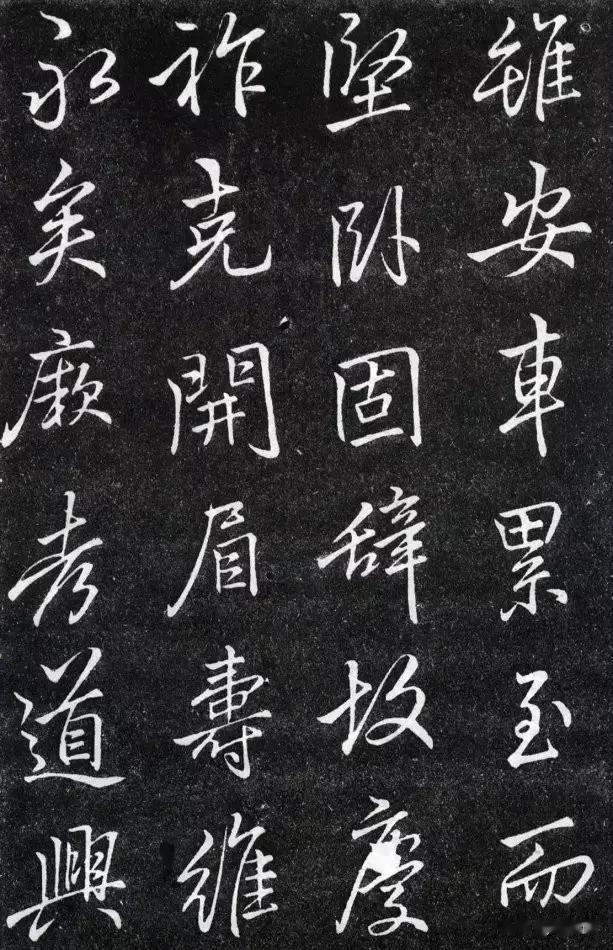 雖安車累至而
堅卧固辭故慶
祚克開眉壽維
永矣厥考道興